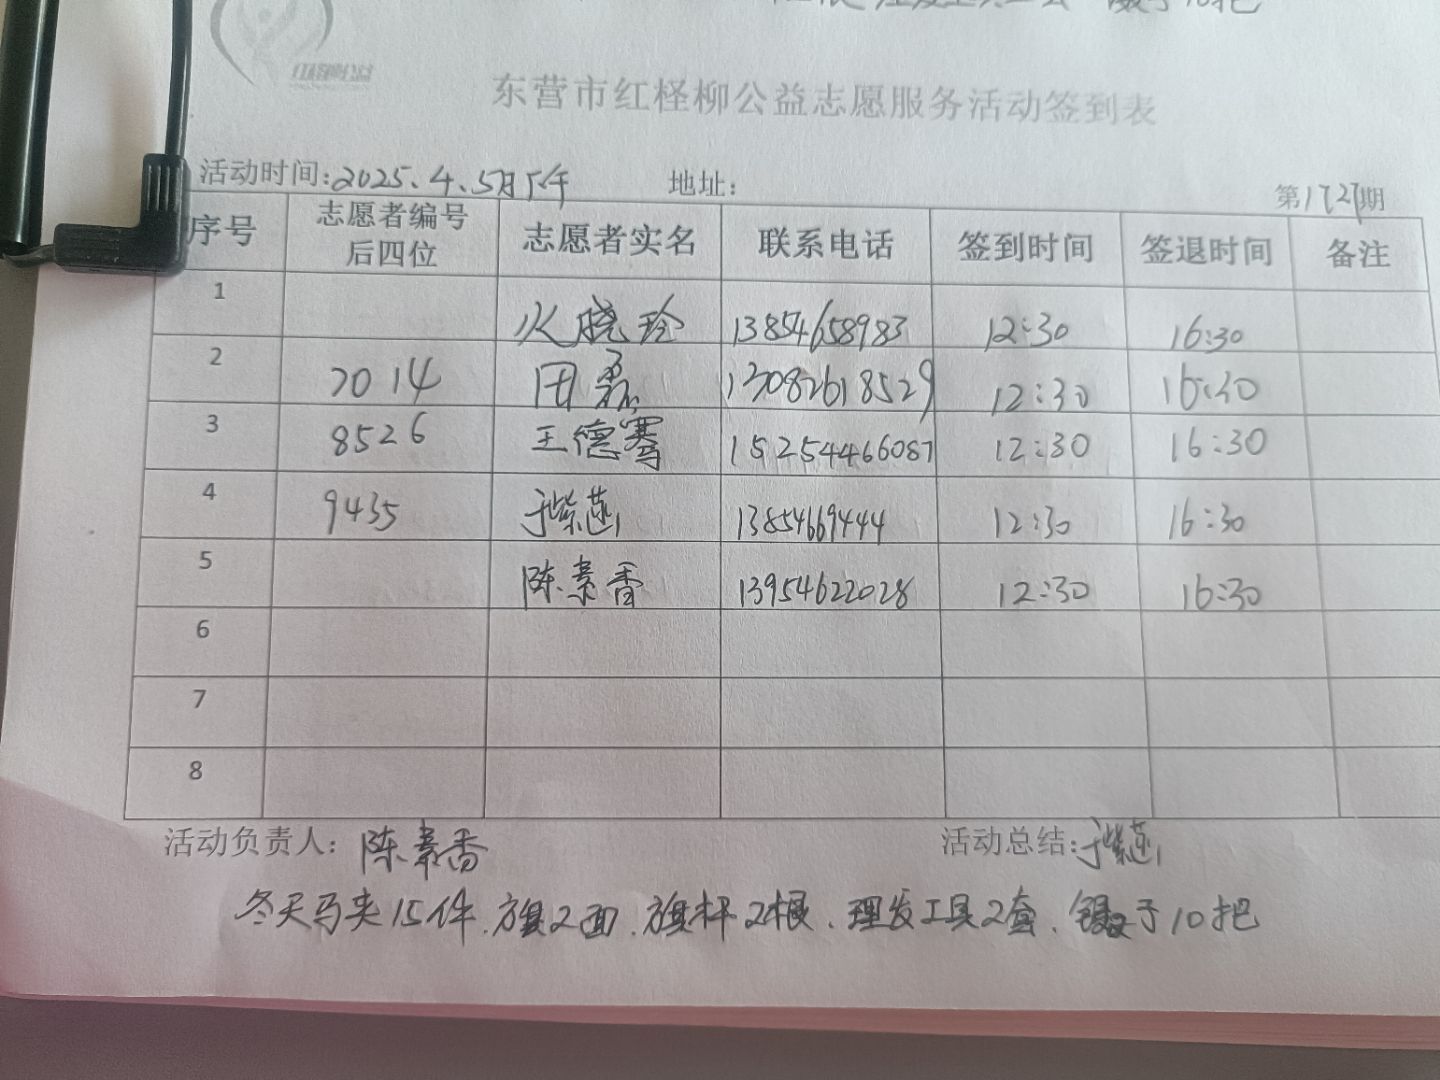 镊子10把
红柽柳公益
东营市红柽柳公益志愿服务活动签到表
活动时间:2025.4.5日下午 地址: 第1727期
序号 志愿者编号后四位 志愿者实名 联系电话 签到时间 签退时间 备注
1 火晓玲 13854658983 12:30 16:30
2 7014 田磊 13082618529 12:30 16:30
3 8526 王德骞 15254466087 12:30 16:30
4 9435 于紫燕 13854669444 12:30 16:30
5 陈素香 13954622028 12:30 16:30
6
7
8
活动负责人: 陈素香 活动总结:于紫燕
冬天马夹15件.旗2面.旗杆2根.理发工具2套.镊子10把